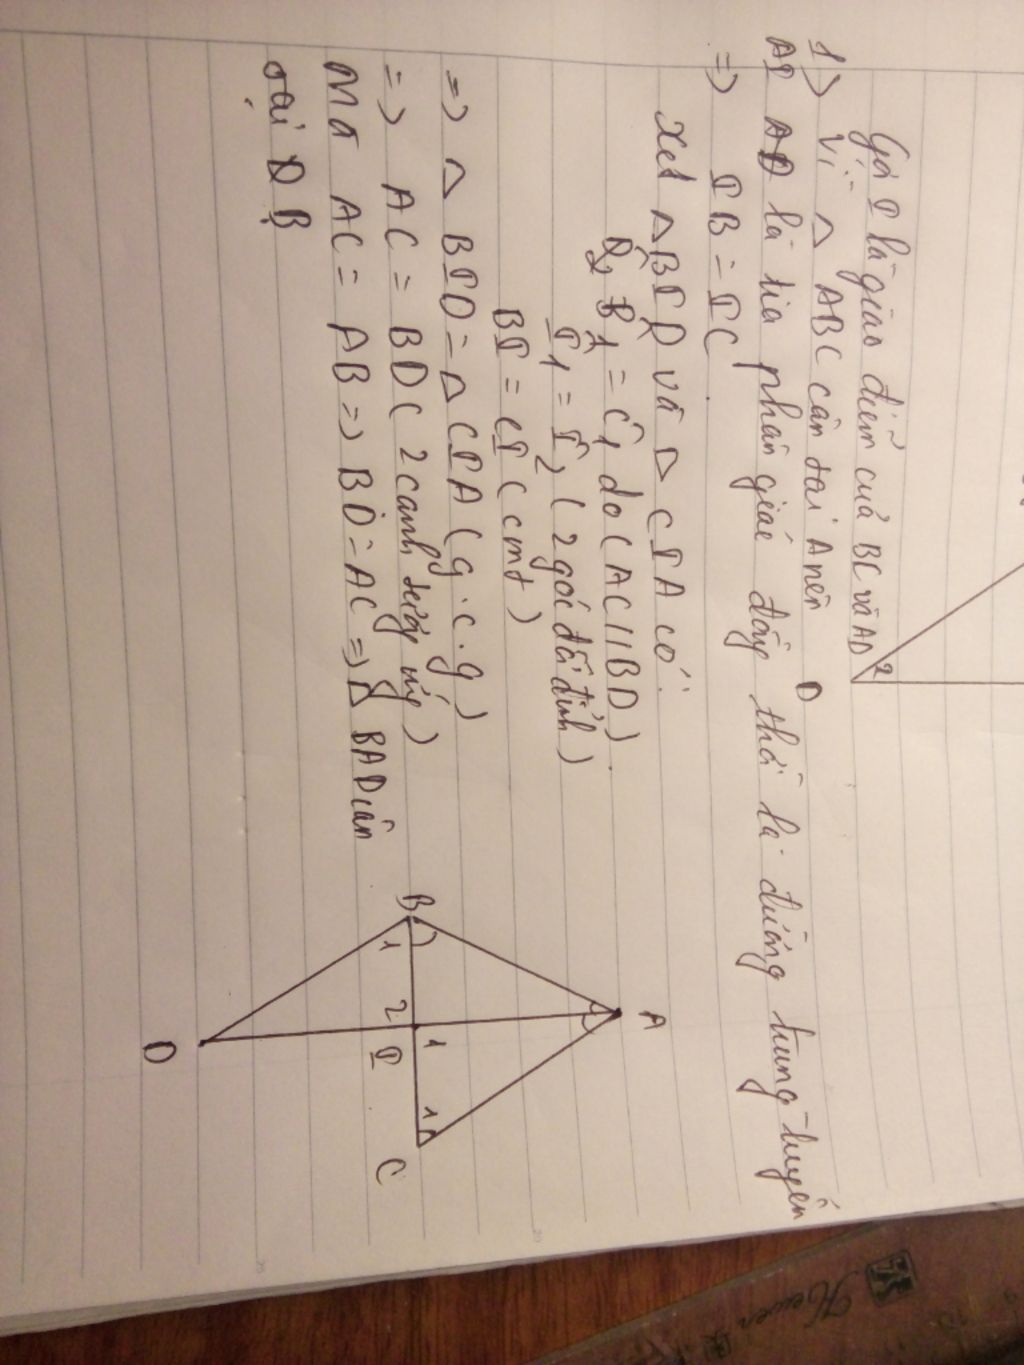 Gọi I là giao điểm của BC và AD
1) Vì △ ABC cân tại A nên
AI AD là tia phân giác đồng thời là đường trung tuyến
=> IB = IC
Xét △BID và △ CIA có:
B1 = C1 do (AC // BD)
I1 = I2 (2 góc đối đỉnh)
BI = CI (cmt)
=> △ BID = △ CIA (g.c.g)
=> AC = BD (2 cạnh tương ứng)
Mà AC = AB => BD = AC => △ BAD cân
tại D B
2
D
A
B
1
2
1
1
I
C
D
Heiwen